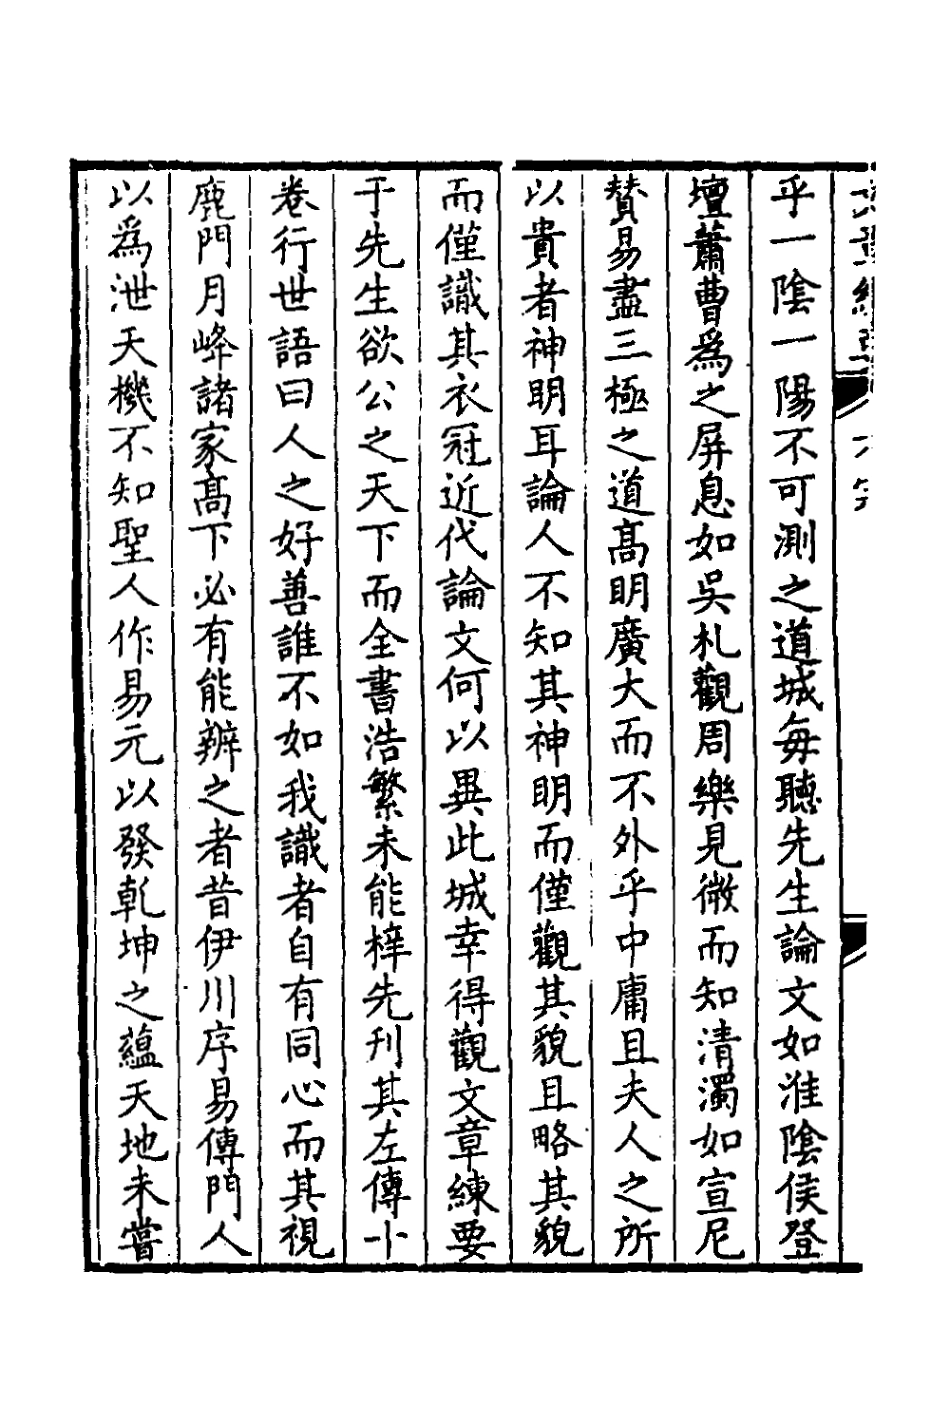 乎一陰一陽不可測之道城每聽先生論文如淮陰侯登
壇蕭曹爲之屏息如吳札觀周樂見微而知清濁如宣尼
賛易盡三極之道髙明廣大而不外乎中庸且夫人之所
以貴者神明耳論人不知其神明而僅觀其貌且略其貌
而僅識其衣冠近代論文何以異此城幸得觀文章練要
于先生欲公之天下而全書浩繁未能梓先刋其左傳十
卷行世語曰人之好善誰不如我識者自有同心而其視
鹿門月峰諸家髙下必有能辨之者昔伊川序易傳門人
以爲泄天機不知聖人作易元以發乾坤之蘊天地未嘗